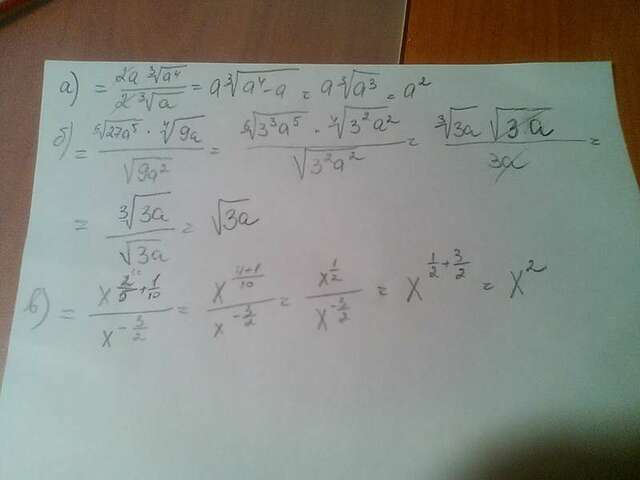 а) = 2a ∛a⁴ / 2 ∛a = a ∛(a⁴-a) = a ∛a³ = a²
б) = ⁶√27a⁵ · ∜9a / √9a² = ⁶√3³a⁵ · ∜3²a² / √3²a² = ∛3a √3a / 3a =
= ∛3a / √3a = √3a
в) = x^(2/5 + 1/10) / x^(-3/2) = x^((4+1)/10) / x^(-3/2) = x^(1/2) / x^(-3/2) = x^(1/2 + 3/2) = x²